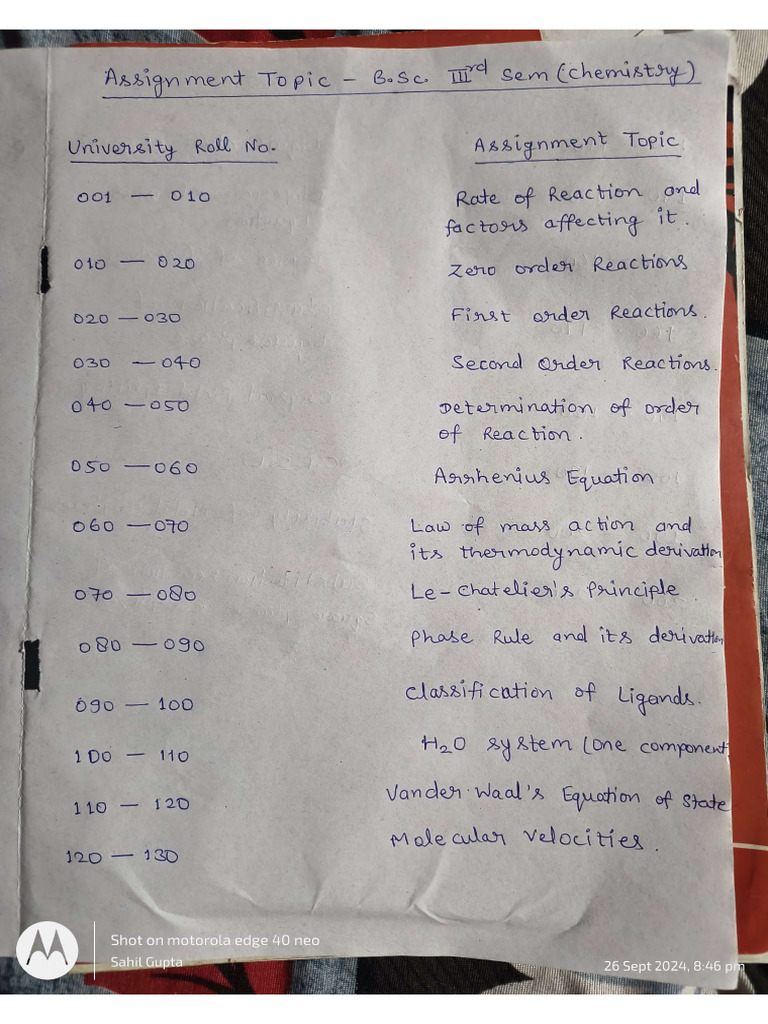 Assignment Topic – B.Sc. IIIrd Sem (Chemistry)
University Roll No. Assignment Topic
001 — 010 Rate of Reaction and
factors affecting it.
010 — 020 Zero order Reactions
020 — 030 First order Reactions.
030 — 040 Second Order Reactions.
040 — 050 Determination of order
of Reaction.
050 — 060 Arrhenius Equation
060 — 070 Law of mass action and
its thermodynamic derivation
070 — 080 Le-Chatelier's Principle
080 — 090 Phase Rule and its derivation
090 — 100 Classification of Ligands.
100 — 110 H2O system (One component
110 — 120 Vander Waal's Equation of State
120 — 130 Molecular velocities.
Shot on motorola edge 40 neo
Sahil Gupta 26 Sept 2024, 8:46 pm